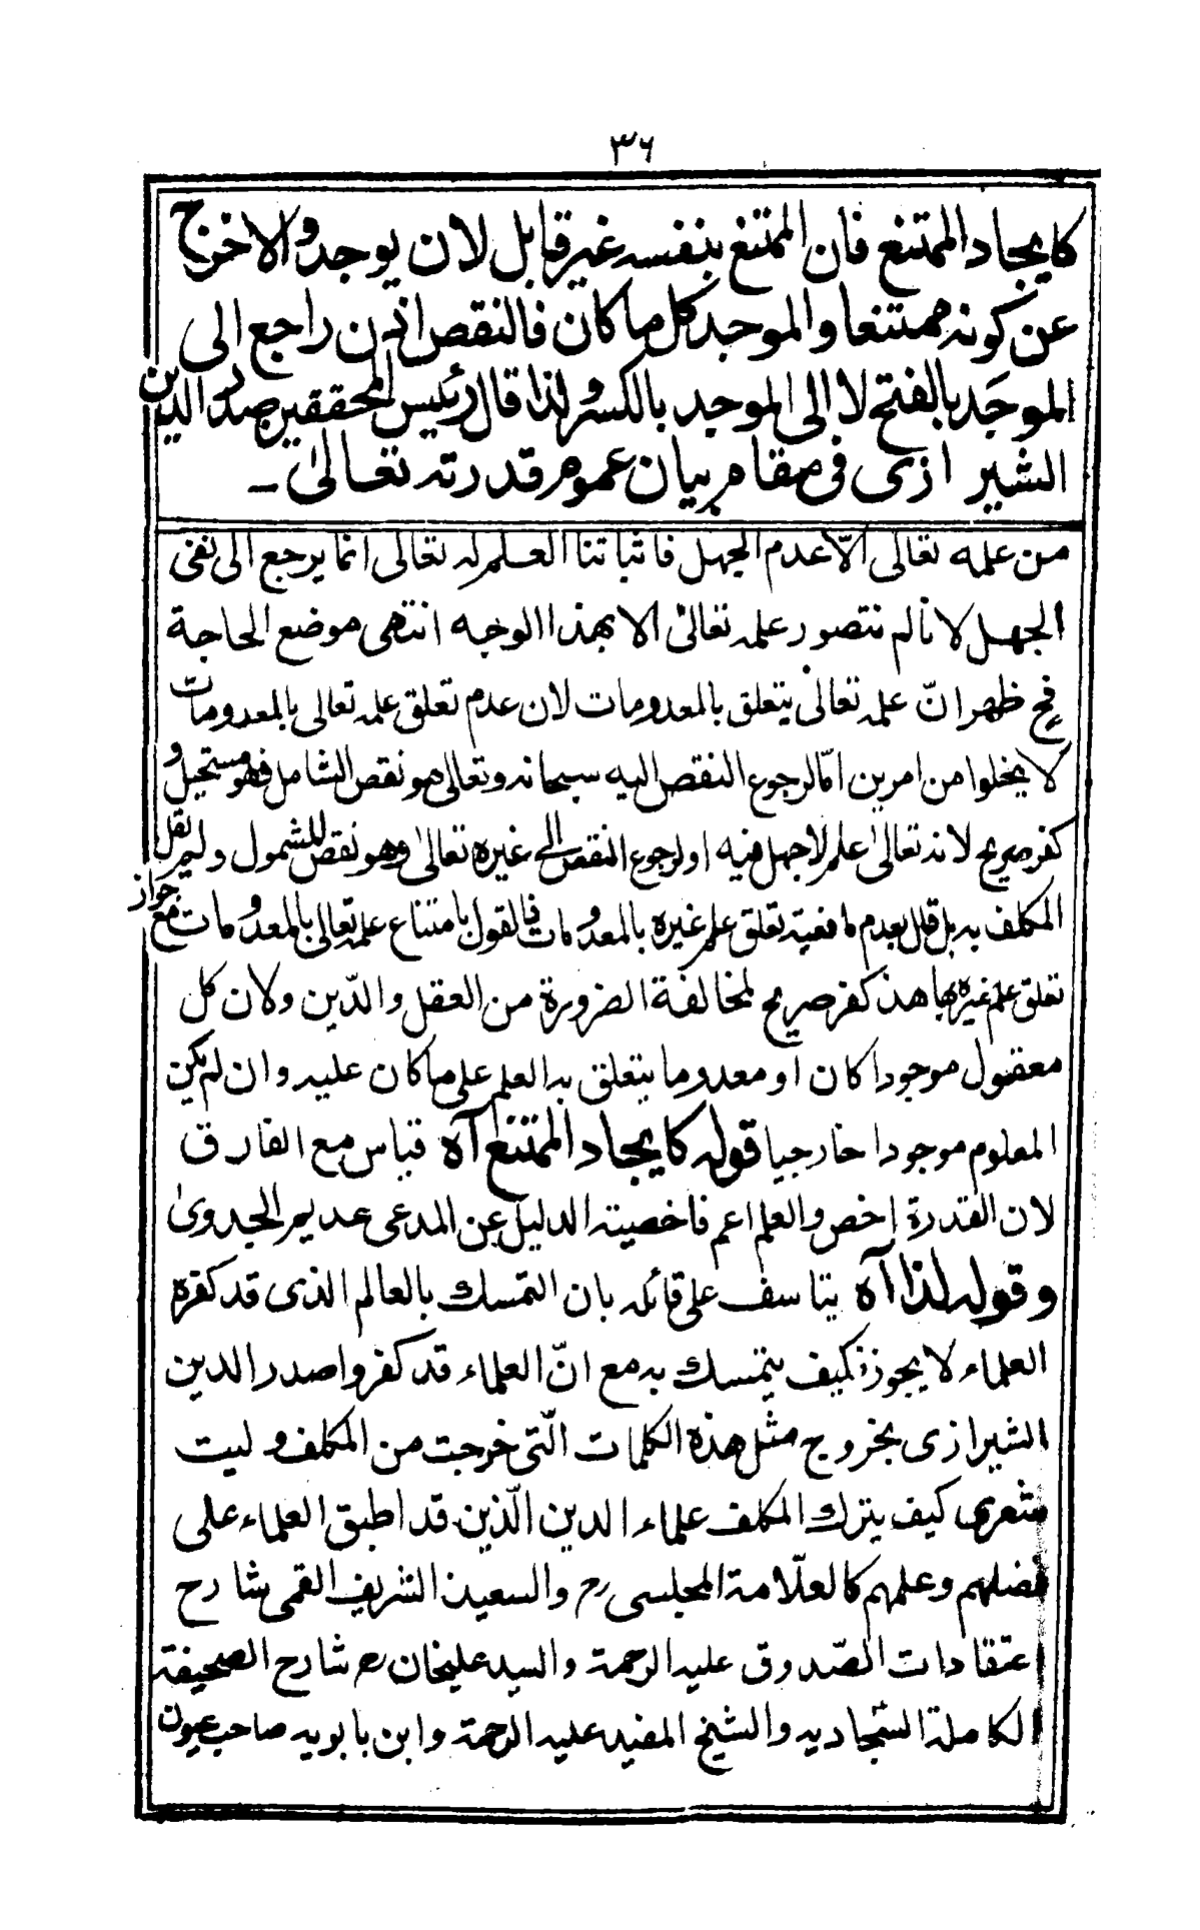 ٣٦
كايجاد الممتنع فان الممتنع بنفسه غير قابل لان يوجد والا خرج
عن كونه ممتنعا والموجد كل ما كان فالنقص اذن راجع الى
الموجَد بالفتح لا الى الموجد بالكسر ولذا قال رئيس المحققين صدر الدين
الشيرازى فى مقام بيان عموم قدرته تعالىٰ ــ
من علمه تعالى الّا عدم الجهل فاثباتنا العلم له تعالى انما يرجع الى نفى
الجهل لانا لم نتصور علمه تعالىٰ الا بهذا الوجه انتهى موضع الحاجة
فح ظهر انّ علمه تعالىٰ يتعلق بالمعدومات لان عدم تعلق علمه تعالى بالمعدومات
لا يخلوا من امرين امّا لرجوع النقص اليه سبحانه وتعالى هو نقص الشامل فهو مستحيل و
كفر صريح لانه تعالىٰ علم لا جهل فيه او لرجوع النقص الى غيره تعالىٰ وهو نقص للشمول ولم يقل
المكلف به بل قال بعدم تعلق علم غيره بالمعدومات فالقول بامتناع علمه تعالى بالمعدومات مع جواز
تعلق علم غيره بها هذ كفر صريح لمخالفة الضرورة من العقل والدّين ولان كل
معقول موجودا كان او معدوما يتعلق به العلم على ما كان عليه وان لم يكن
المعلوم موجودا خارجيا قوله كايجاد الممتنع آه قياس مع الفارق
لان القدرة اخص والعلم اعم فاخصيته الدليل عن المدعى عديم الجدوىٰ
وقوله لذا آه يتاسف على قائله بان التمسك بالعالم الذى قد كفره
العلماء لا يجوز فكيف يتمسك به مع انّ العلماء قد كفروا صدر الدين
الشيرازى بخروج مثل هذه الكلمات الّتى خرجت من المكلف وليت
شعرى كيف يترك المكلف علماء الدين الّذين قد اطبق العلماء على
فضلهم وعلمهم كالعلّامة المجلسى رح والسعيد الشريف القمى شارح
اعتقادات الصّدوق عليه الرحمة والسيد عليخان رح شارح الصحيفة
الكاملة السّجادية والشيخ المفيد عليه الرحمة وابن بابويه صاحب عيون